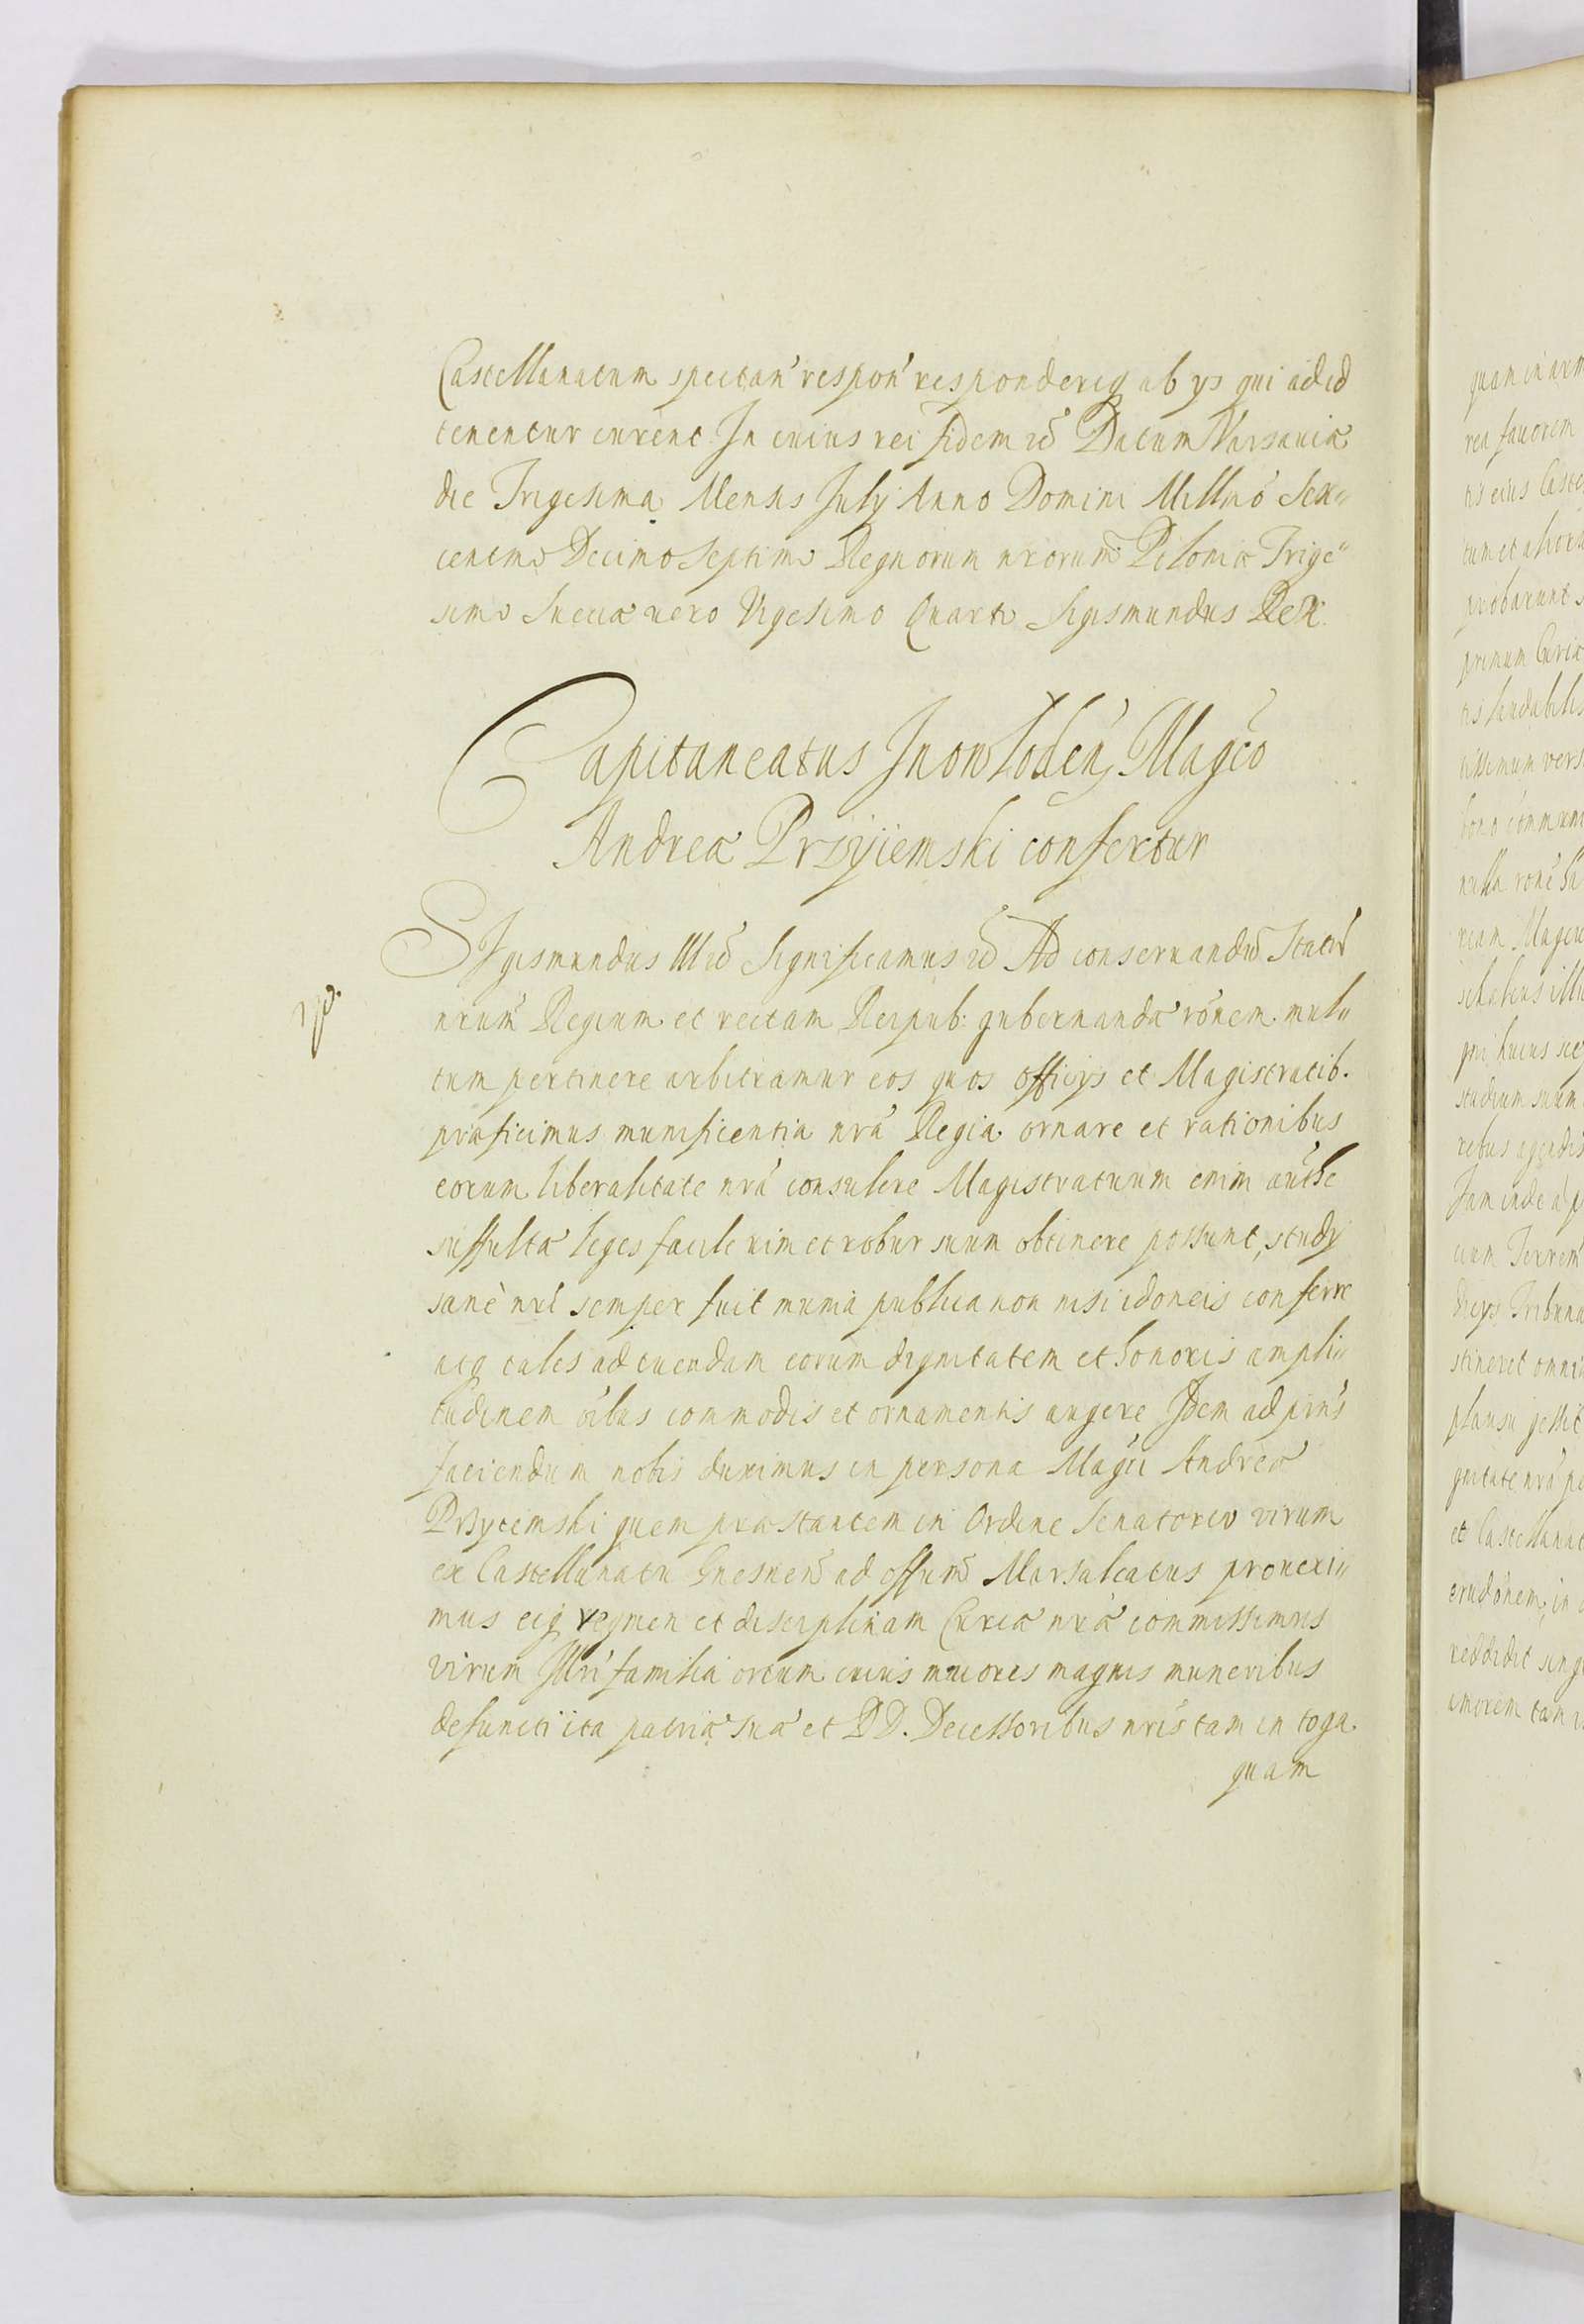 Castellanatum spectan' respon' responderiq ab ys qui ad id
tenentur curent In cuius rei fidem ec̃ Datum Varsauiæ
die Trigesima Mensis July Anno Domini Millmõ Sex„
centmo Decimo Septimo Regnorum nrorum Poloniæ Trige„
simo Sueciæ uero Vigesimo Quarto Sigismundus Rex.
Capitaneatus Inowlodeñ Magco
Andreæ Przyiemski confertur
SIgismundus III ec̃ Significamus ec̃ Ad conseruandũ Statũ
nrum Regium et rectam Reipub: gubernandæ rõnem mul„
tum pertinere arbitramur eos quos officys et Magistratib.
præficimus munificentia nrã Regia ornare et rationibus
eorum liberalitate nrã consulere Magistratuum enim authe
suffultæ leges facile uim et robur suum obtinere possunt, study
sanè nri semper fuit munia publica non nisi idoneis conferre
atq tales ad tuendam eorum dignitatem et honoris ampli„
tudinem oĩbus commodis et ornamentis augere Idem ad pñs
faciendum nobis duximus in persona Magci Andreæ
Przyiemski quem præstantem in Ordine Senatorio virum
ex Castellanatu Gnesneñ ad offum Marsalcatus prouexi„
mus eiq regmen et disciplinam Curiæ nræ commissimus
virum Illri familia ortum cuius maiores magnis muneribus
defuncti ita patriæ suæ et DD. Decessoribus nris tam in toga
quam
quam in arm
rea fauorem
tis eius Caste
tum et alior
probarunt s
primum Curiæ
tis laudabilis
tissimum vers
bono commun
nulla ronẽ
studium suum
rebus agendis
Jam inde a p
cium Terren
dicys Tribuna
stineret omni
plausu gessit
gnitate nrã p
et Castellanat
erudonem, in
reddidit sing
amorem tam